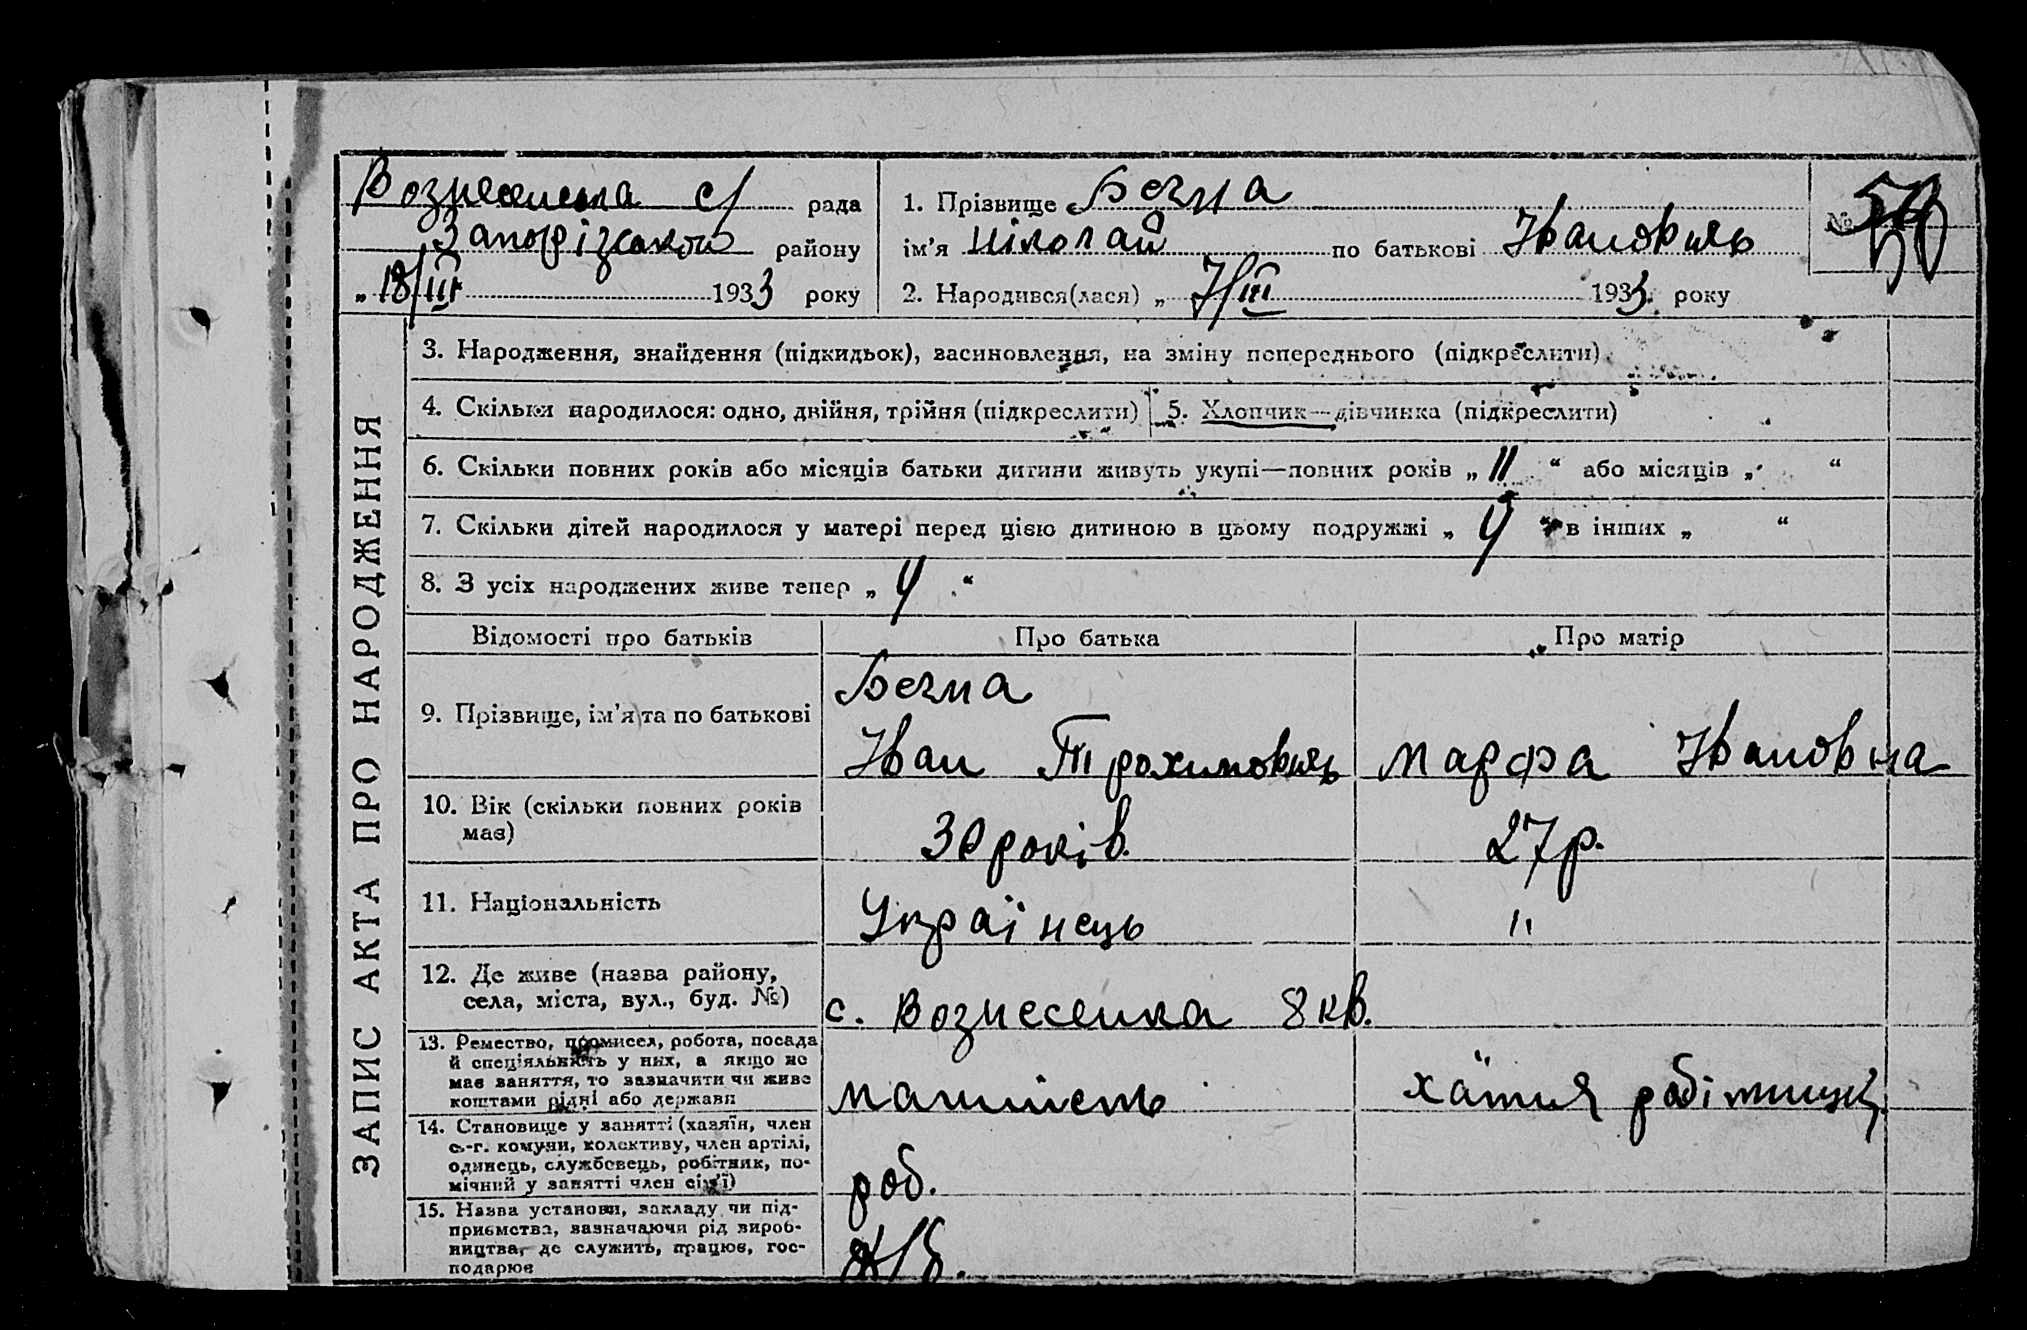 Вознесенська с/ рада
Запорізького району
„18/III 1933 року
1. Прізвище Бегма
ім'я Ніколай по батькові Івановичь
2. Народився(лася) „ 7/III 1933. року
№
ЗАПИС АКТА ПРО НАРОДЖЕННЯ
3. Народження, знайдення (підкидьок), засиновлення, на зміну попереднього (підкреслити)
4. Скільки народилося: одно, двійня, трійня (підкреслити) 5. Хлопчик—дівчинка (підкреслити)
6. Скільки повних років або місяців батьки дитини живуть укупі—повних років „ 11 “ або місяців „ “
7. Скільки дітей народилося у матері перед цією дитиною в цьому подружжі „ 4 “ в інших „ “
8. З усіх народжених живе тепер „ 4 “
Відомості про батьків Про батька Про матір
9. Прізвище, ім'я та по батькові
Бегма
Іван Трохимовичь Марфа Івановна
10. Вік (скільки повних років
має)
30 років. 27 р.
11. Національність Українець "
12. Де живе (назва району,
села, міста, вул., буд. №)
с. Вознесенка 8 кв.
13. Ремество, промисел, робота, посада
й спеціяльність у них, а якщо не
має заняття, то зазначити чи живе
коштами рідні або держави
машиність хатня робітниця
14. Становище у занятті (хазяїн, член
с.-г. комуни, колективу, член артілі,
одинець, службовець, робітник, по-
мічний у занятті член сім'ї)
роб.
15. Назва установи, закладу чи під-
приємства, зазначаючи рід вироб-
ництва, де служить, працює, гос-
подарює